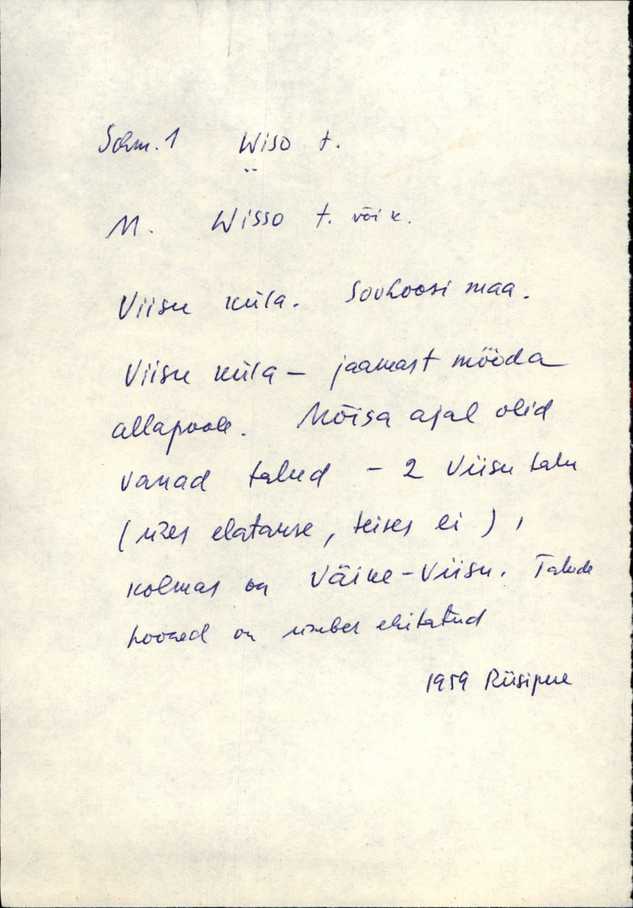 Schm. 1 Wiso t.
M. Wisso t. või k.
Viisu küla. Sovhoosi maa.
Viisu küla – jaamast mööda
allapoole. Mõisa ajal olid
vanad talud – 2 Viisu talu
(ühes elatakse, teises ei),
kolmas on Väike-Viisu. Talude
hooned on ümber ehitatud
1959 Riisipere